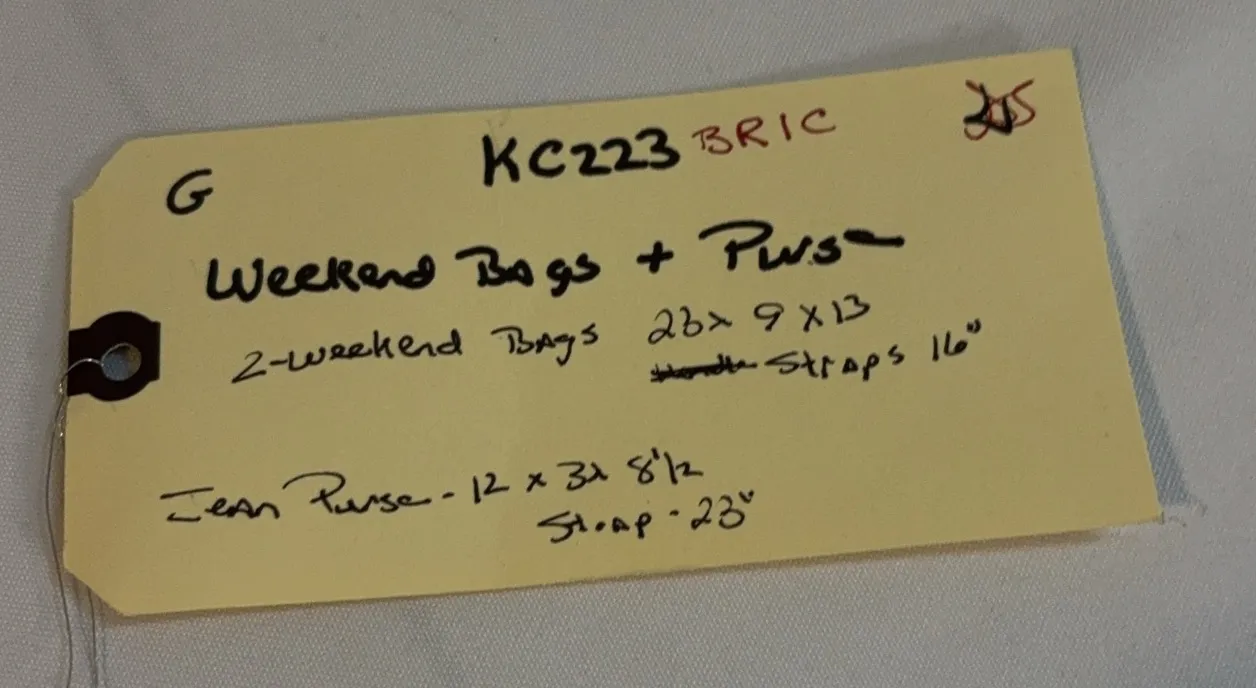 G KC223 BRIC
Weekend Bags + Purse
2-weekend Bags 23x 9 x 13
Straps 16"
Jean Purse - 12 x 3x 8 1/2
Strap - 23"